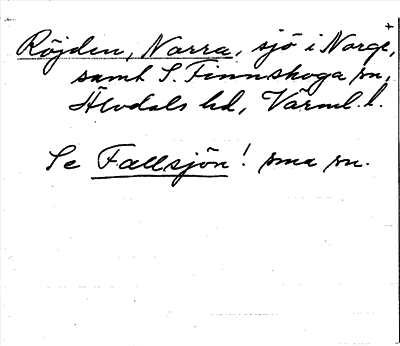 Röjden, Norra, sjö i Norge,
samt S. Finnskoga sn,
Älvdals hd, Värml. l.
Se Fallsjön! sma sn.